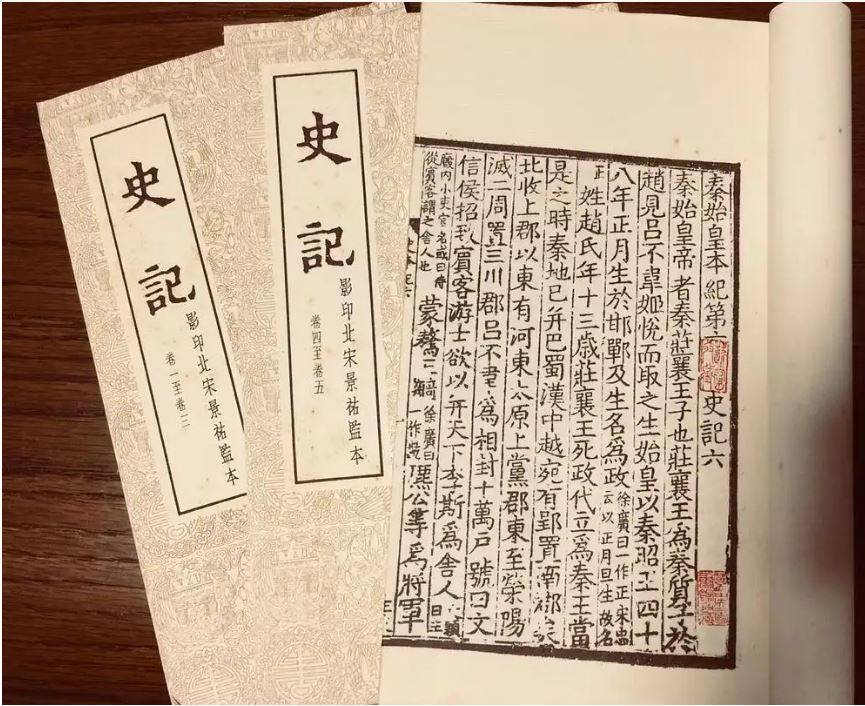 史記
影印北宋景祐監本
卷一至卷三
史記
影印北宋景祐監本
卷四至卷五
秦始皇本紀第六 史記六
秦始皇帝者秦莊襄王子也莊襄王爲秦質子於
趙見呂不韋姬悅而取之生始皇以秦昭王四十
八年正月生於邯鄲及生名爲政徐廣曰一作正宋忠云以正月旦生故名
正姓趙氏年十三歲莊襄王死政代立爲秦王當
是之時秦地已并巴蜀漢中越宛有郢置南郡矣
北收上郡以東有河東太原上黨郡東至滎陽
滅二周置三川郡呂不韋爲相封十萬戶號曰文
信侯招致賓客游士欲以并天下李斯爲舍人文穎曰主
廄內小吏官名或曰侍從賓客謂之舍人也蒙驁王齮徐廣曰一作齕麃公等爲將軍